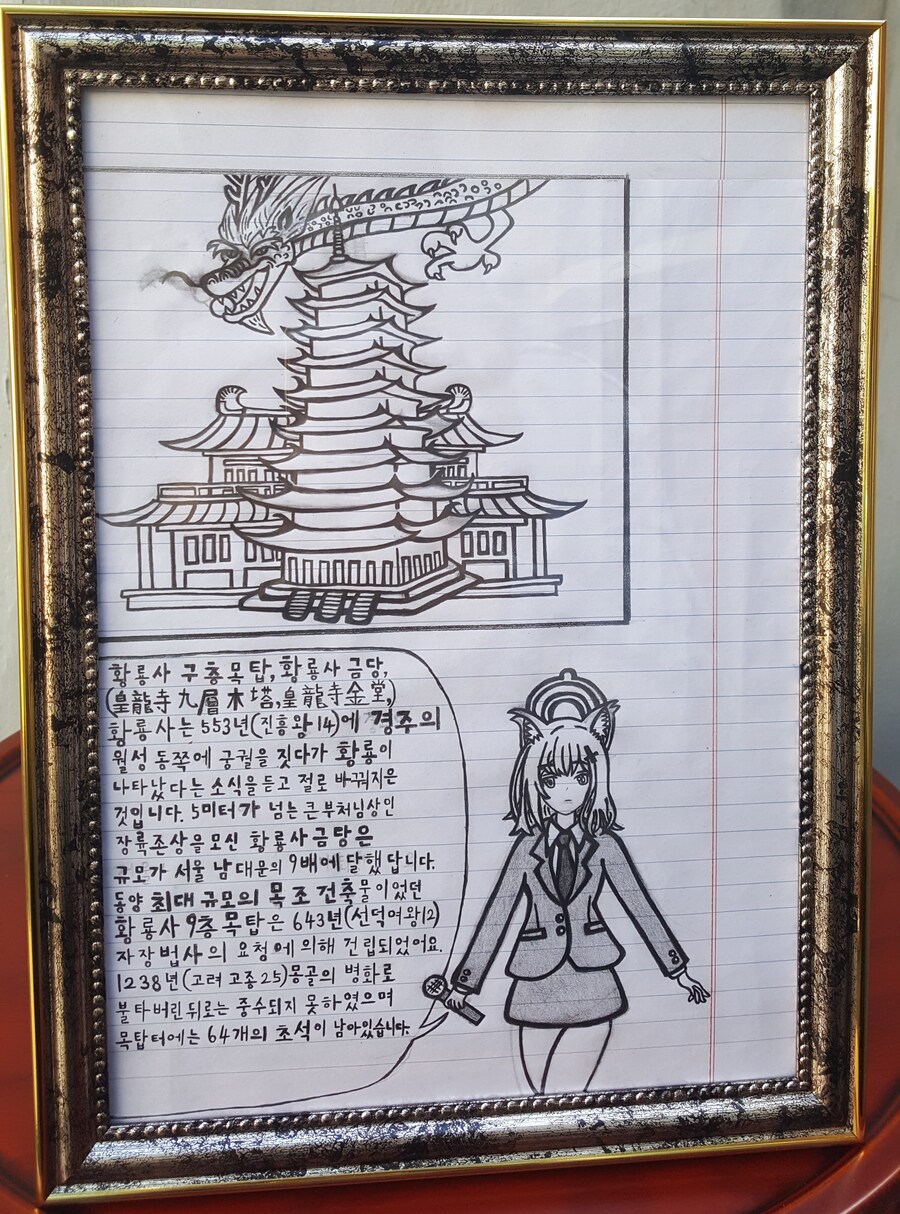 황룡사 구층목탑, 황룡사 금당,
(皇龍寺九層木塔,皇龍寺金堂,)
황룡사는 553년(진흥왕14)에 경주의
월성 동쪽에 궁궐을 짓다가 황룡이
나타났다는 소식을 듣고 절로 바꿔지은
것입니다. 5미터가 넘는 큰 부처님상인
장륙존상을 모신 황룡사 금당은
규모가 서울 남대문의 9배에 달했답니다.
동양 최대 규모의 목조 건축물이었던
황룡사 9층 목탑은 643년(선덕여왕12)
자장법사의 요청에 의해 건립되었어요.
1238년(고려 고종25)몽골의 병화로
불타버린 뒤로는 중수되지 못하였으며
목탑터에는 64개의 초석이 남아있습니다.